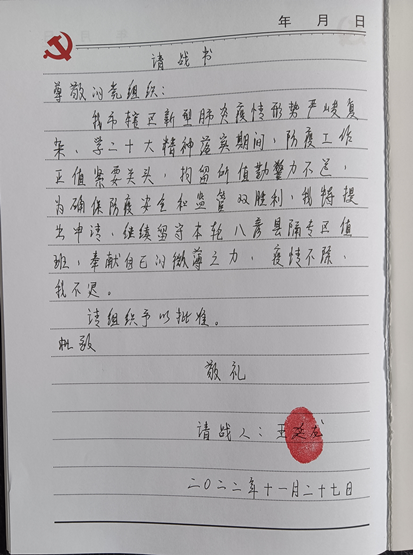 年 月 日
请战书
尊敬的党组织:
我市辖区新型肺炎疫情形势严峻复
杂、学二十大精神落实期间,防疫工作
正值紧要关头,拘留所值勤警力不足,
为确保防疫安全和监管双胜利,我特提
出申请,继续留守本轮八彦县隔专区值
班,奉献自己的微薄之力,疫情不除,
我不退。
请组织予以批准。
此致
敬礼
请战人:王廷龙
二〇二二年十一月二十七日